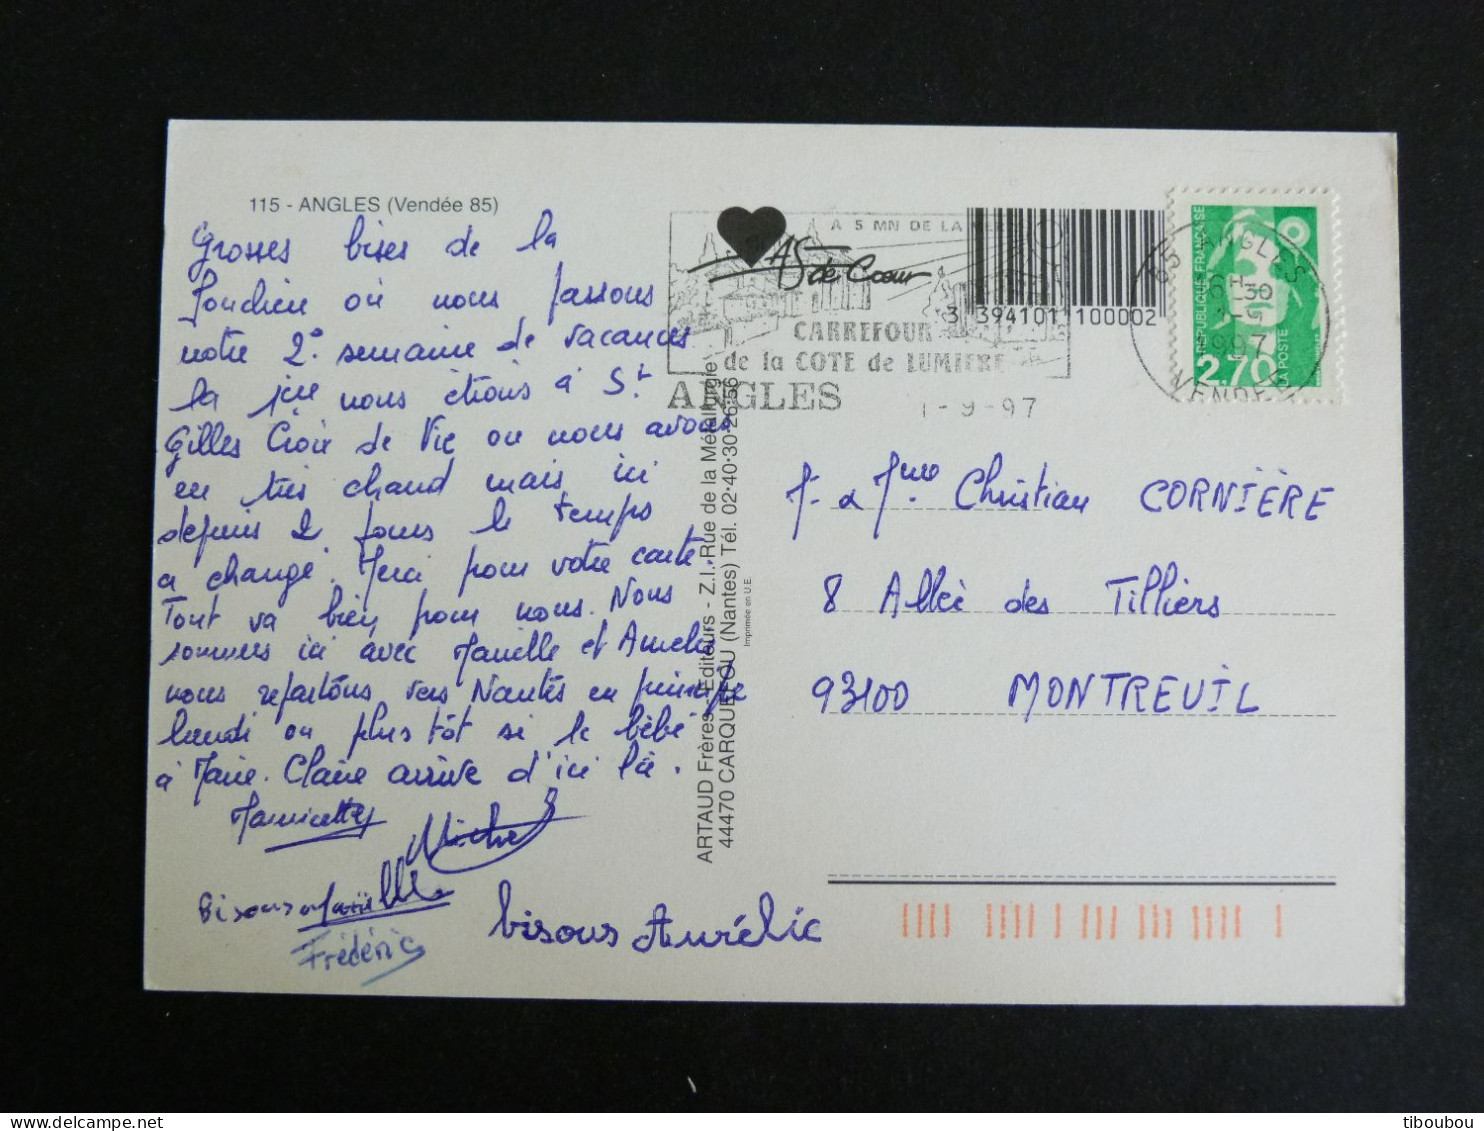 115 - ANGLES (Vendée 85)
Grosses bises de la
où nous passons
notre 2e semaine de vacances
la 1ère nous étions à St
Gilles Croix de Vie où nous avons
eu très chaud mais ici
depuis 2 jours le temps
a changé. Merci pour votre carte
Tout va bien pour nous. Nous
sommes ici avec Maëlle et Aurélie
nous repartons vers Nantes en principe
lundi ou plus tôt si le bébé
à Marie. Claire arrive d'ici là.
Michel
Bisous Maëlle
Frédéric
bisous Aurélie
ARTAUD Frères - Editeurs - Z.I. Rue de la Métallurgie
44470 CARQUEFOU (Nantes) Tél. 02·40·30·26·56
Imprimée en U.E.
AS de Cœur
A 5 MN DE LA MER
CARREFOUR
de la COTE de LUMIERE
ANGLES
1-9-97
3 394101 100002
85 ANGLES
1-9
1997
VENDEE
REPUBLIQUE FRANÇAISE
2,70
LA POSTE
M. & Mme Christian CORNIÈRE
8 Allée des Tilliers
93100 MONTREUIL
tiboubou